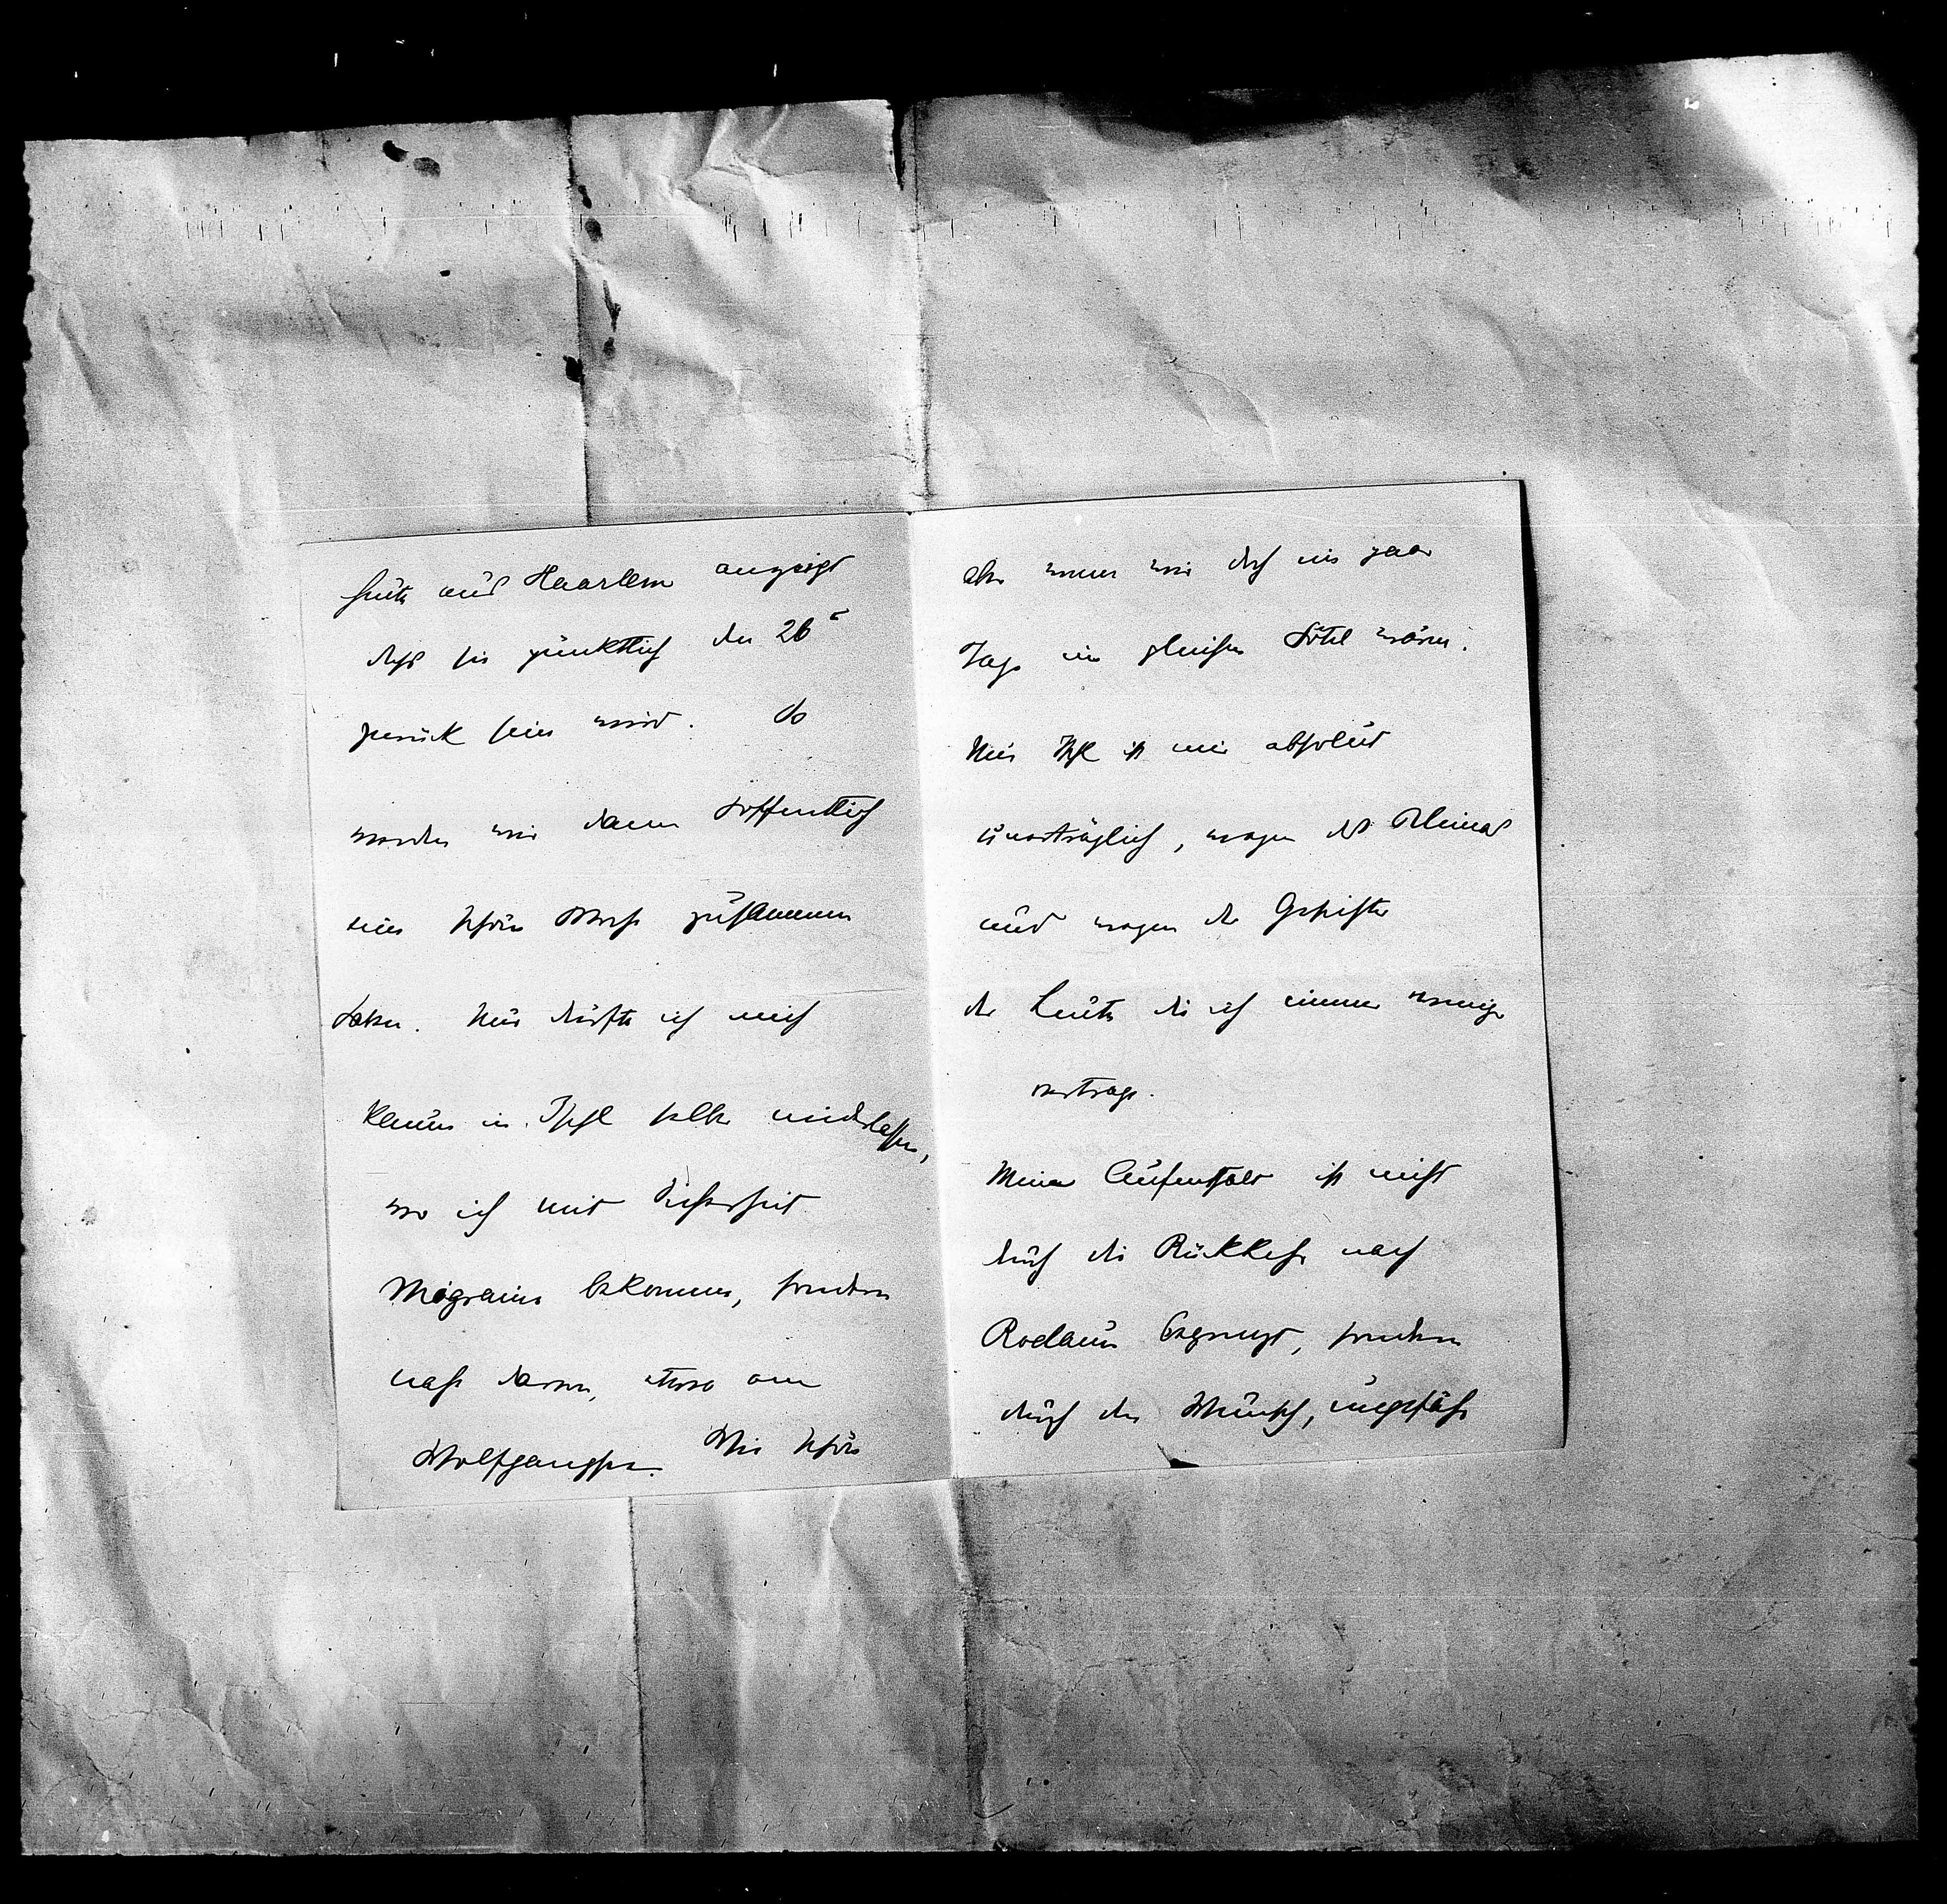 heute aus Haarlem anzeigt
dass sie pünktlich den 26ten
zurück sein wird. So
werden wir dann hoffentlich
eine schöne Woche zusammen
haben. Nur dürfte ich mich
kaum in Ischl selber niederlassen,
wo ich mit Sicherheit
Migraine bekomme, sondern
nahe daran, etwa am
Wolfgangsee. Wie schön
aber wenn wir doch ein paar
Tage im gleichen Hôtel wären.
Nur Ischl ist mir absolut
unerträglich, wegen des Climas
und wegen der Gesichter
der Leute die ich immer weniger
vertrage.
Mein Aufenthalt ist nicht
durch die Rückkehr nach
Rodaun begrenzt, sondern
durch den Wunsch, ungefähr